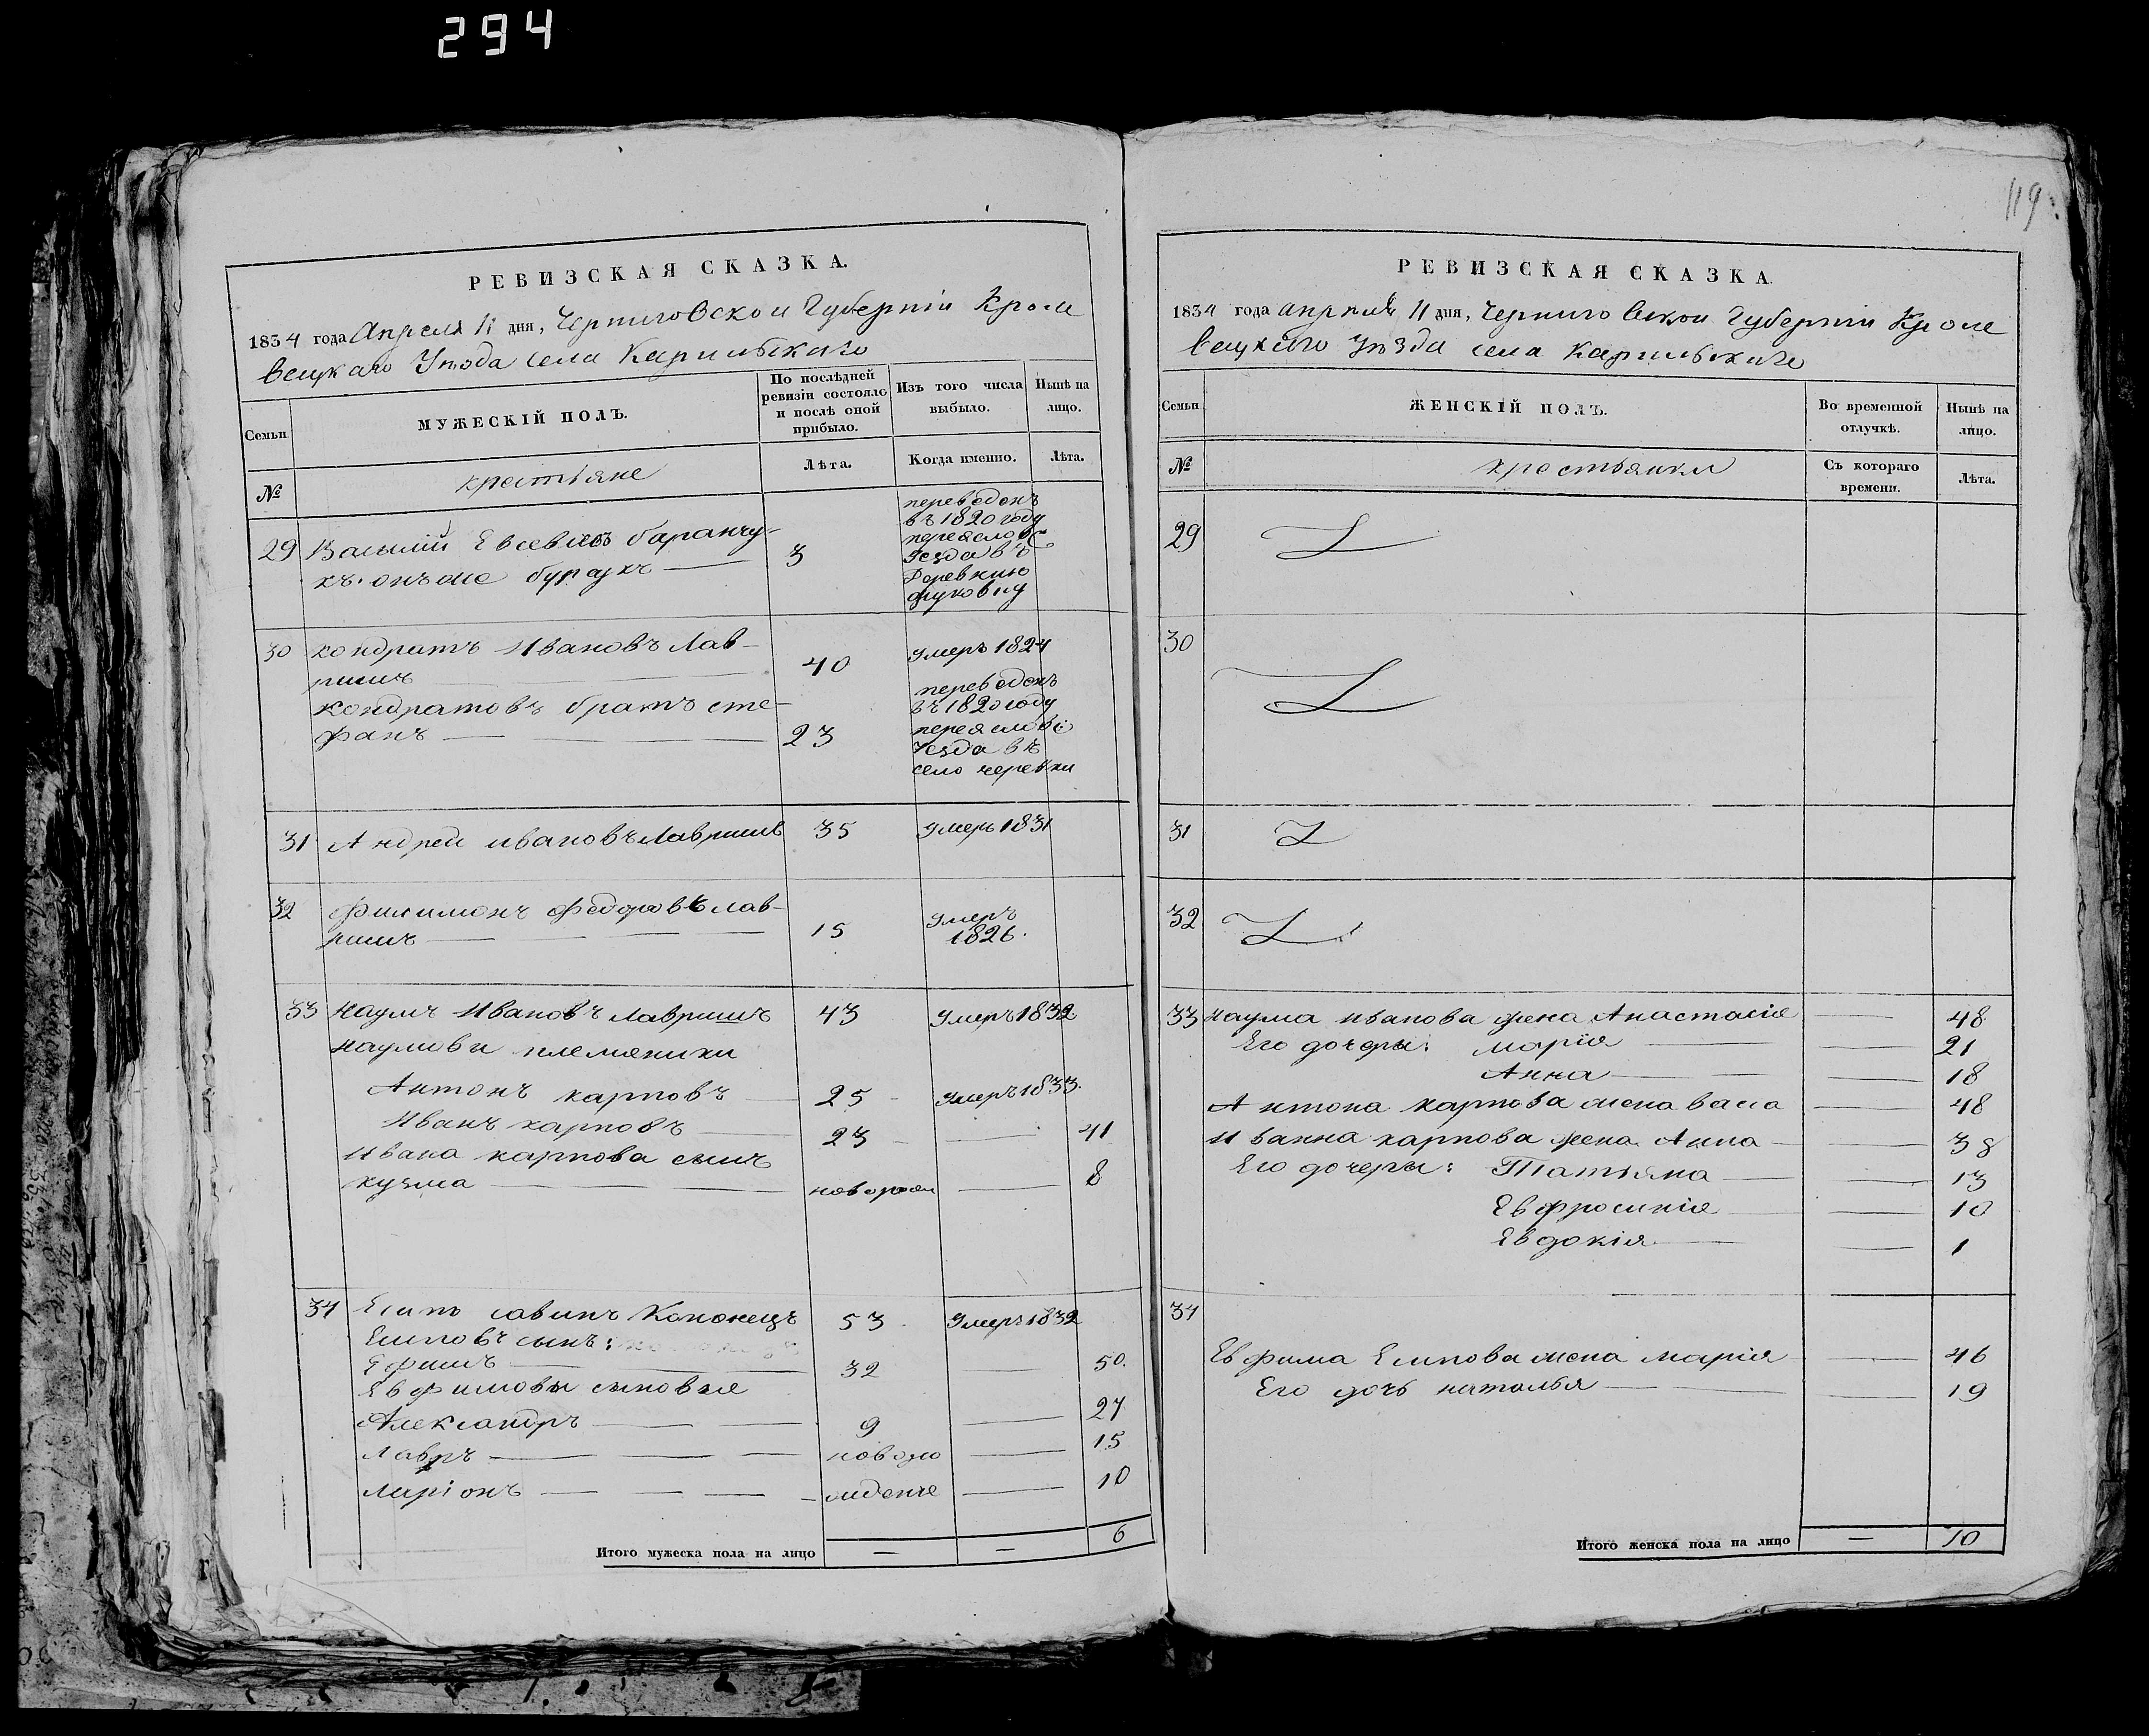 294
119
РЕВИЗСКАЯ СКАЗКА.
1834 года Апреля 11 дня, Черниговской Губерніи Кроле
вецкаго Уезда села Карильскаго
Семьи
МУЖЕСКІЙ ПОЛЪ.
По послѣдней ревизіи состояло и послѣ оной прибыло.
Изъ того числа выбыло.
Нынѣ на лицо.
№
крестьяне
Лѣта.
Когда именно.
Лѣта.
29 Васылій Евсевіевъ баранчу-
къ. онъже буракъ 3
переведенъ
въ 1820 году
переяслов
уезда въ
30 кондратъ Ивановъ Лав-
ришъ 40 умеръ 1824
кондратовъ братъ сте-
фанъ 23
переведенъ
въ 1820 году
переяслов
уезда въ
село черевки
31 Андрей ивановъ Лавришъ 35 умеръ 1831
32 Филимонъ Федоровъ лав-
ришъ 15 умеръ
1826.
33 Наумъ Ивановъ Лавришъ 43 умеръ 1832
наумовы племяники
Антонъ карповъ 25 умеръ 1833.
Иванъ карповъ 23 41
Ивана карпова сынъ
кузма новорожд 8
34 Есипъ савинъ Кононецъ 53 умеръ 1832
Есиповъ сынъ:
Ефимъ 32 50.
Евфимовы сыновья
Александръ 9 24
Лавръ новоро 15
Ларіонъ жденые 10
Итого мужеска пола на лицо — — 6
РЕВИЗСКАЯ СКАЗКА.
1834 года апреля 11 дня, Черниговской Губерніи Кроле
вецкого уѣзда села Карильскаго
Семьи
ЖЕНСКІЙ ПОЛЪ.
Во временной отлучкѣ.
Нынѣ на лицо.
№
крестьянки
Съ котораго времени.
Лѣта.
29
30
31
32
33 наума иванова жена Анастасія 48
Его дочеры: марія 21
Анна 18
Антона карпова жена васа 48
Иванна карпова жена Анна 38
Его дочеры: Татьяна 13
Евфросинія 10
Евдокія 1
34
Евфима Есипова жена марія 46
Его дочь наталья 19
Итого женска пола на лицо — 10